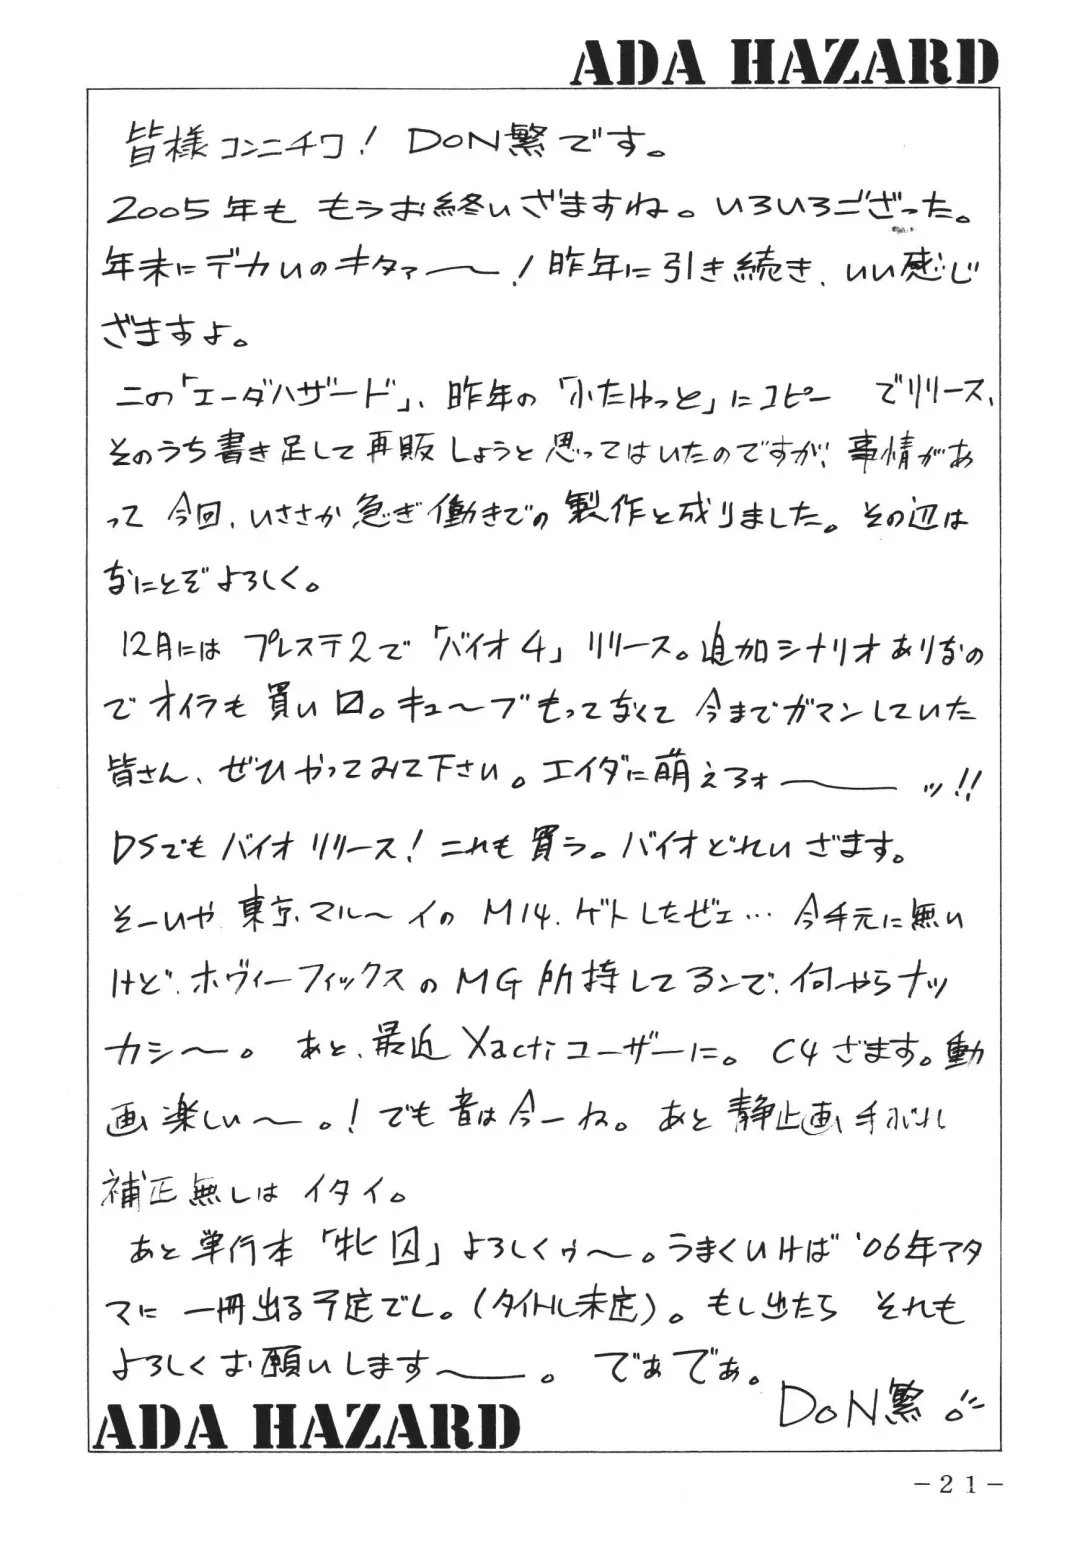 ADA HAZARD
皆様コンニチワ! DoN繁です。
2005年も もうお終いざますね。いろいろござった。
年末にデカいのキタァー〜! 昨年に引き続き、いい感じ
ざますよ。
この「エーダハザード」、昨年の「ふたけっと」にコピー でリリース、
そのうち書き足して再販しようと思ってはいたのですが、事情があ
って 今回、いささか急ぎ働きでの製作と成りました。その辺は
なにとぞよろしく。
12月には プレステ2で「バイオ4」リリース。追加シナリオありなの
でオイラも買い〼。キュ〜ブもってなくて今までガマンしていた
皆さん、ぜひやってみて下さい。エイダに萌えろォ───ッ!!
DSでもバイオリリース! これも買う。バイオどれいざます。
そーいや東京マル〜イのM14、ゲトしたぜェ… 今手元に無い
けど、ホヴィーフィックスのMG所持してるンで、何やらナッ
カシ〜。 あと、最近Xactiユーザーに。C4ざます。動
画楽しい〜。! でも音は今一ね。あと静止画手ボレ
補正無しはイタイ。
あと単行本「牝囚」よろしくゥ〜。うまくいけば'06年アタ
マに一冊出る予定でし。(タイトル未定)。もし出たら それも
よろしくお願いします〜。 でぁでぁ。
DoN繁
ADA HAZARD
－21－